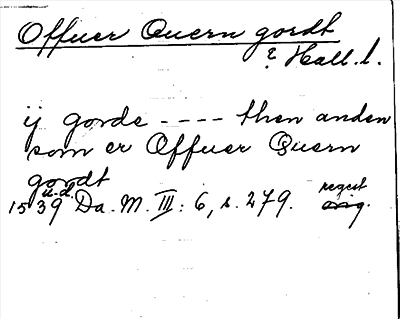 Offuer Quern gordt
? Hall. l.
ij gorde ---- then anden
som er Offuer Quern
gordt
u.d.
1539 Da. M. III: 6, s. 279. regest orig.